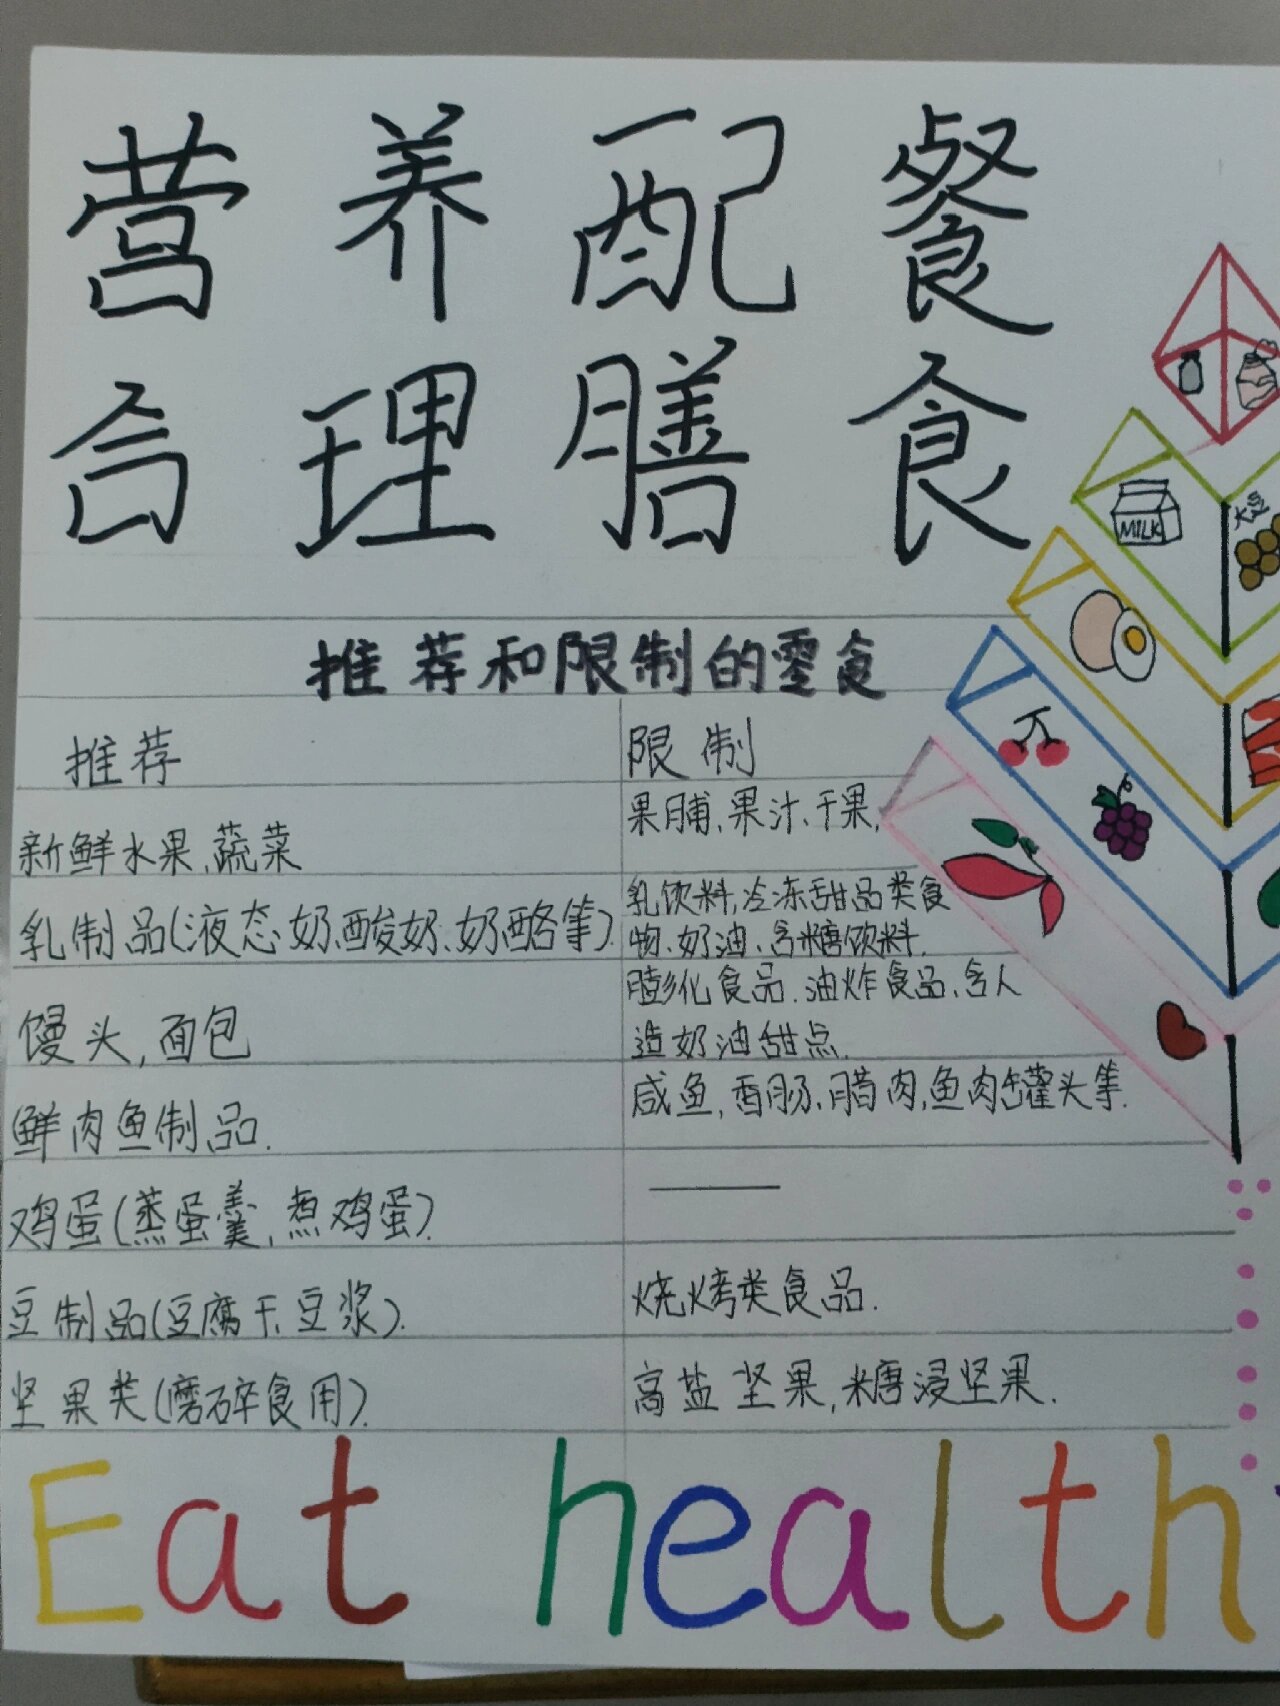 营养配餐
合理膳食
MILK
大豆
推荐和限制的零食
推荐
限制
新鲜水果、蔬菜
果脯、果汁、干果、
乳制品(液态奶、酸奶、奶酪等)
乳饮料、冷冻甜品类食
物、奶油、含糖饮料.
馒头,面包
膨化食品、油炸食品、含人
造奶油甜点.
鲜肉鱼制品.
咸鱼,香肠、腊肉、鱼肉罐头等.
鸡蛋(蒸蛋羹,煮鸡蛋).
——
豆制品(豆腐干、豆浆).
烧烤类食品.
坚果类(磨碎食用).
高盐坚果,糖浸坚果.
Eat health